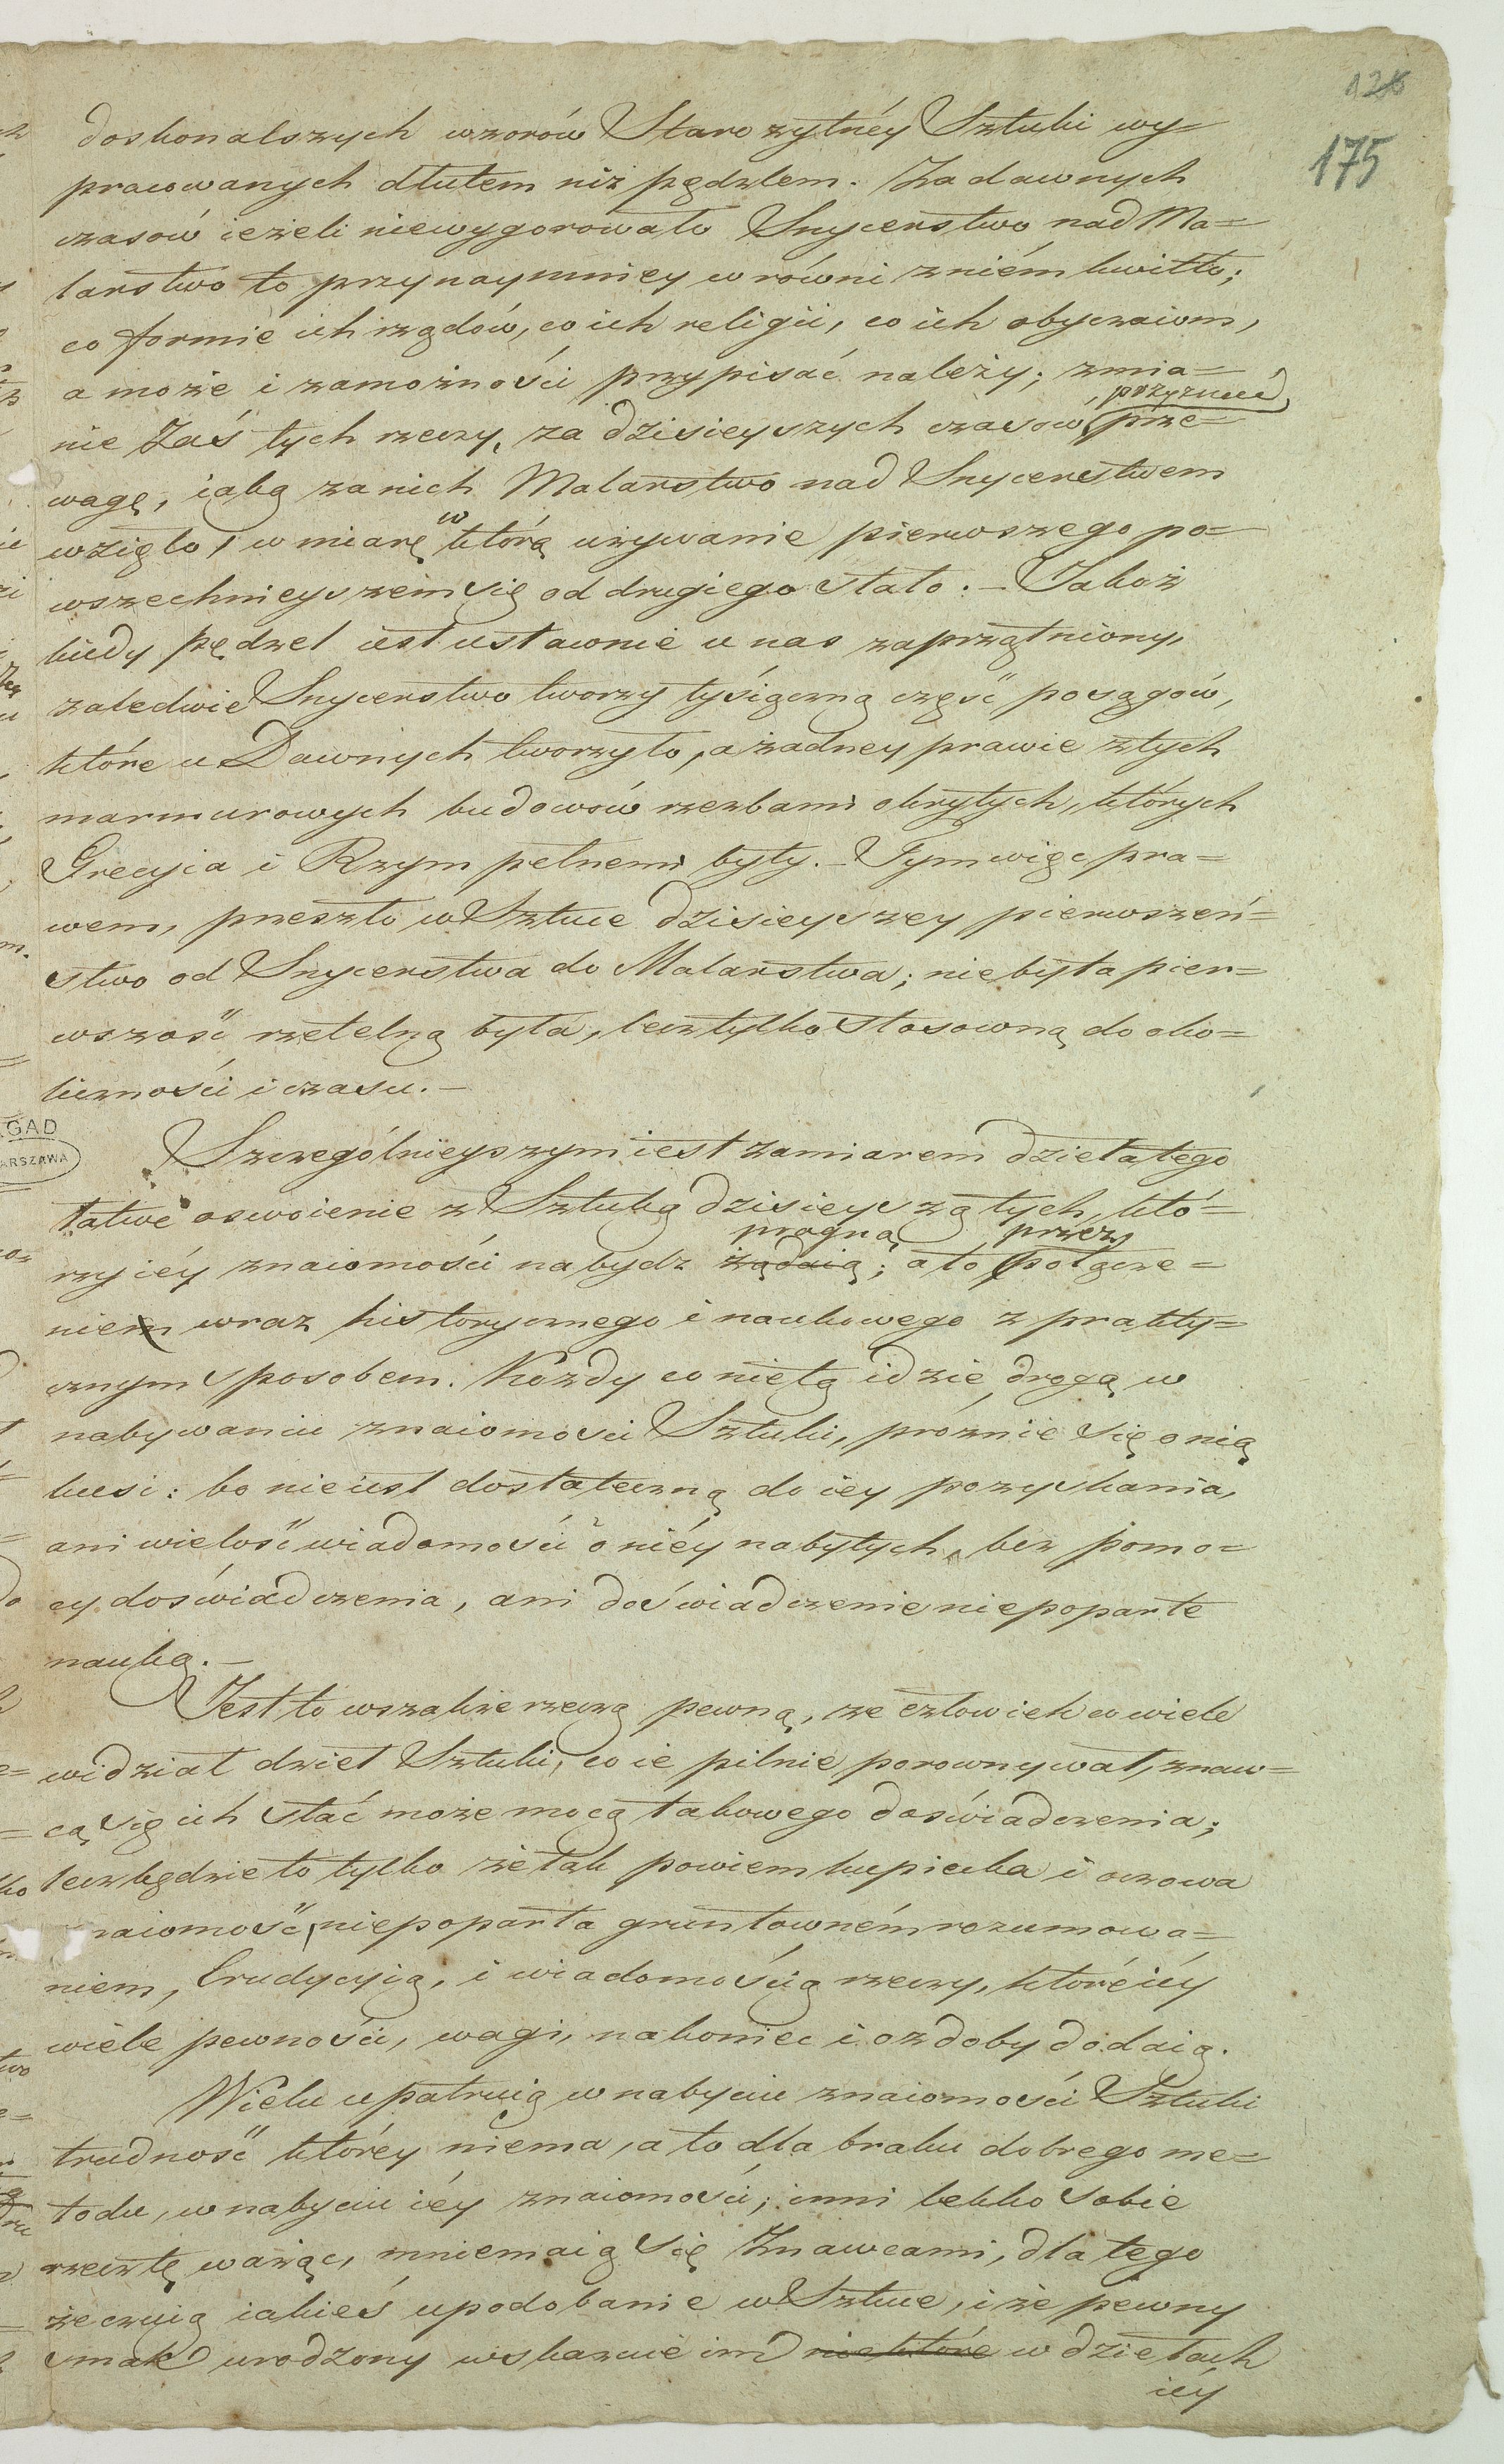 126
175
doskonalszych wzorów Starożytnéy Sztuki wy=
pracowanych dłutem niż pędzlem. Za dawnych
czasów ieżeli niewygorowało Snycerstwo nad Ma=
larstwo to przynaymniey w równi zniém kwitło;
co formie ich rządów, co ich religii, co ich obyczaiom,
a może i zamożności przypisać należy; zmia=
przyznać
nie Zaś tych rzeczy, za dzisieyszych czasów, prze=
wagę, iaką zanich Malarstwo nad Snycerstwem
w
wzięło, w miarę którą używanie pierwszego po=
wszechnieyszem się od drugiego stało. – Jakoż
kiedy pędzel iest ustawnie u nas zaprzątniony,
zaledwie Snycerstwo tworzy tysiączną część posągów,
które u Dawnych tworzyło, a żadney prawie ztych
marmurowych budowów rzezbami okrytych, których
Grecyia i Rzym pełnemi były. – Tym więc pra=
wem, przeszło w Sztuce dzisieyszey pierwszeń=
stwo od Snycerstwa do Malarstwa; nie by ta pier=
wszość rzetelną była, lecz tylko stosowną do oko=
liczności i czasu. –
AGAD
WARSZAWA
Szczególnieyszym iest zamiarem dzieła tego
łatwe oswoienie z Sztuką dzisieyszą tych, któ=
pragną przez
rzy iéy znaiomości nabydz żądaią; a to połącze=
niem wraz historycznego i naukowego z prakty=
cznym sposobem. Każdy co nie tą idzie drogą w
nabywaniu znaiomosci Sztuki, próżnie się o nią
kusi: bo nie iest dostateczną do iey pozyskania,
ani wielość wiadomości o niéy nabytych, bez pomo=
cy doświadczenia, ani doświadczenie niepoparte
nauką. –
Jest to wszakże rzeczą pewną, że człowiek co wiele
widział dzieł Sztuki, co ie pilnie porownywał, znaw=
cą się ich stać może mocą takowego doświadczenia;
lecz będzie to tylko że tak powiem kupiecka i oczowa
naiomość, niepoparta gruntowném rozumowa=
niem, Erudycyią, i wiadomością rzeczy, które iéy
wiele pewności, wagi, nakoniec i ozdoby dodaią.
Wielu upatruią w nabyciu znaiomości Sztuki
trudność któréy niema, a to dla braku dobrego me=
todu, w nabyciu iéy znaiomości; inni lekko sobie
rzecz tę ważąc, mniemaią się Znawcami, dla tego
że czuią iakieś upodobanie w Sztuce, i że pewny
smak urodzony wskazuie im niektóre w dziełach
iéy